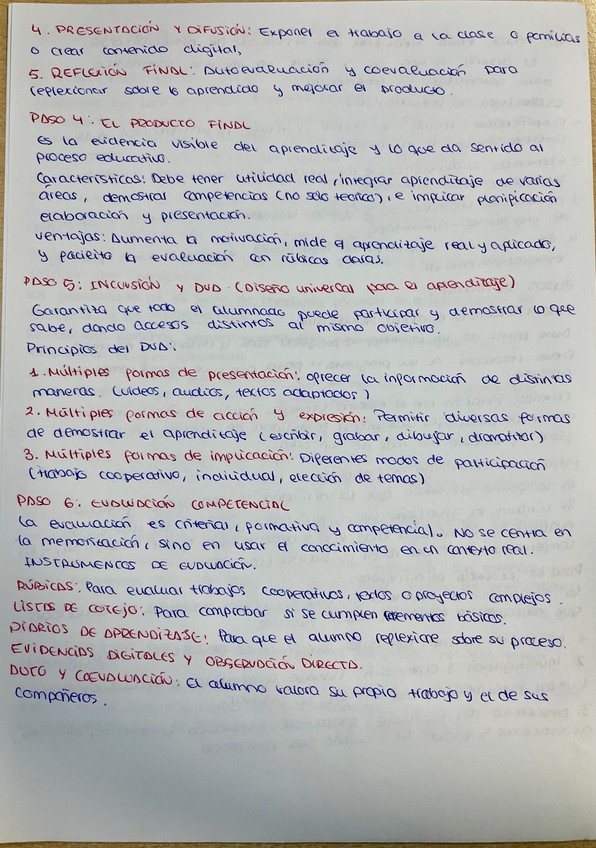 4. PRESENTACIÓN Y DIFUSIÓN: Exponer el trabajo a la clase o familias
o crear contenido digital,
5. REFLEXIÓN FINAL: Autoevaluación y coevaluación para
reflexionar sobre lo aprendido y mejorar el producto.
PASO 4: EL PRODUCTO FINAL
Es la evidencia visible del aprendizaje y lo que da sentido al
proceso educativo.
Características: Debe tener utilidad real, integrar aprendizaje de varias
áreas, demostrar competencias (no solo teóricas), e implicar planificación
elaboración y presentación.
Ventajas: Aumenta la motivación, mide el aprendizaje real y aplicado,
y facilita la evaluación con rúbricas claras.
PASO 5: INCLUSIÓN Y DUA (Diseño universal para el aprendizaje)
Garantiza que todo el alumnado puede participar y demostrar lo que
sabe, dando accesos distintos al mismo objetivo.
Principios del DUA:
1. Múltiples formas de presentación: ofrecer la información de distintas
maneras. (vídeos, audios, textos adaptados)
2. Múltiples formas de acción y expresión: Permitir diversas formas
de demostrar el aprendizaje (escribir, grabar, dibujar, dramatizar)
3. Múltiples formas de implicación: Diferentes modos de participación
(trabajo cooperativo, individual, elección de temas)
PASO 6: EVALUACIÓN COMPETENCIAL
La evaluación es criterial, formativa y competencial. No se centra en
la memorización, sino en usar el conocimiento en un contexto real.
INSTRUMENTOS DE EVALUACIÓN.
RÚBRICAS: Para evaluar trabajos cooperativos, textos o proyectos complejos.
LISTAS DE COTEJO: Para comprobar si se cumplen elementos básicos.
DIARIOS DE APRENDIZAJE: Para que el alumno reflexione sobre su proceso.
EVIDENCIAS DIGITALES Y OBSERVACIÓN DIRECTA.
AUTO Y COEVALUACIÓN: El alumno valora su propio trabajo y el de sus
compañeros.